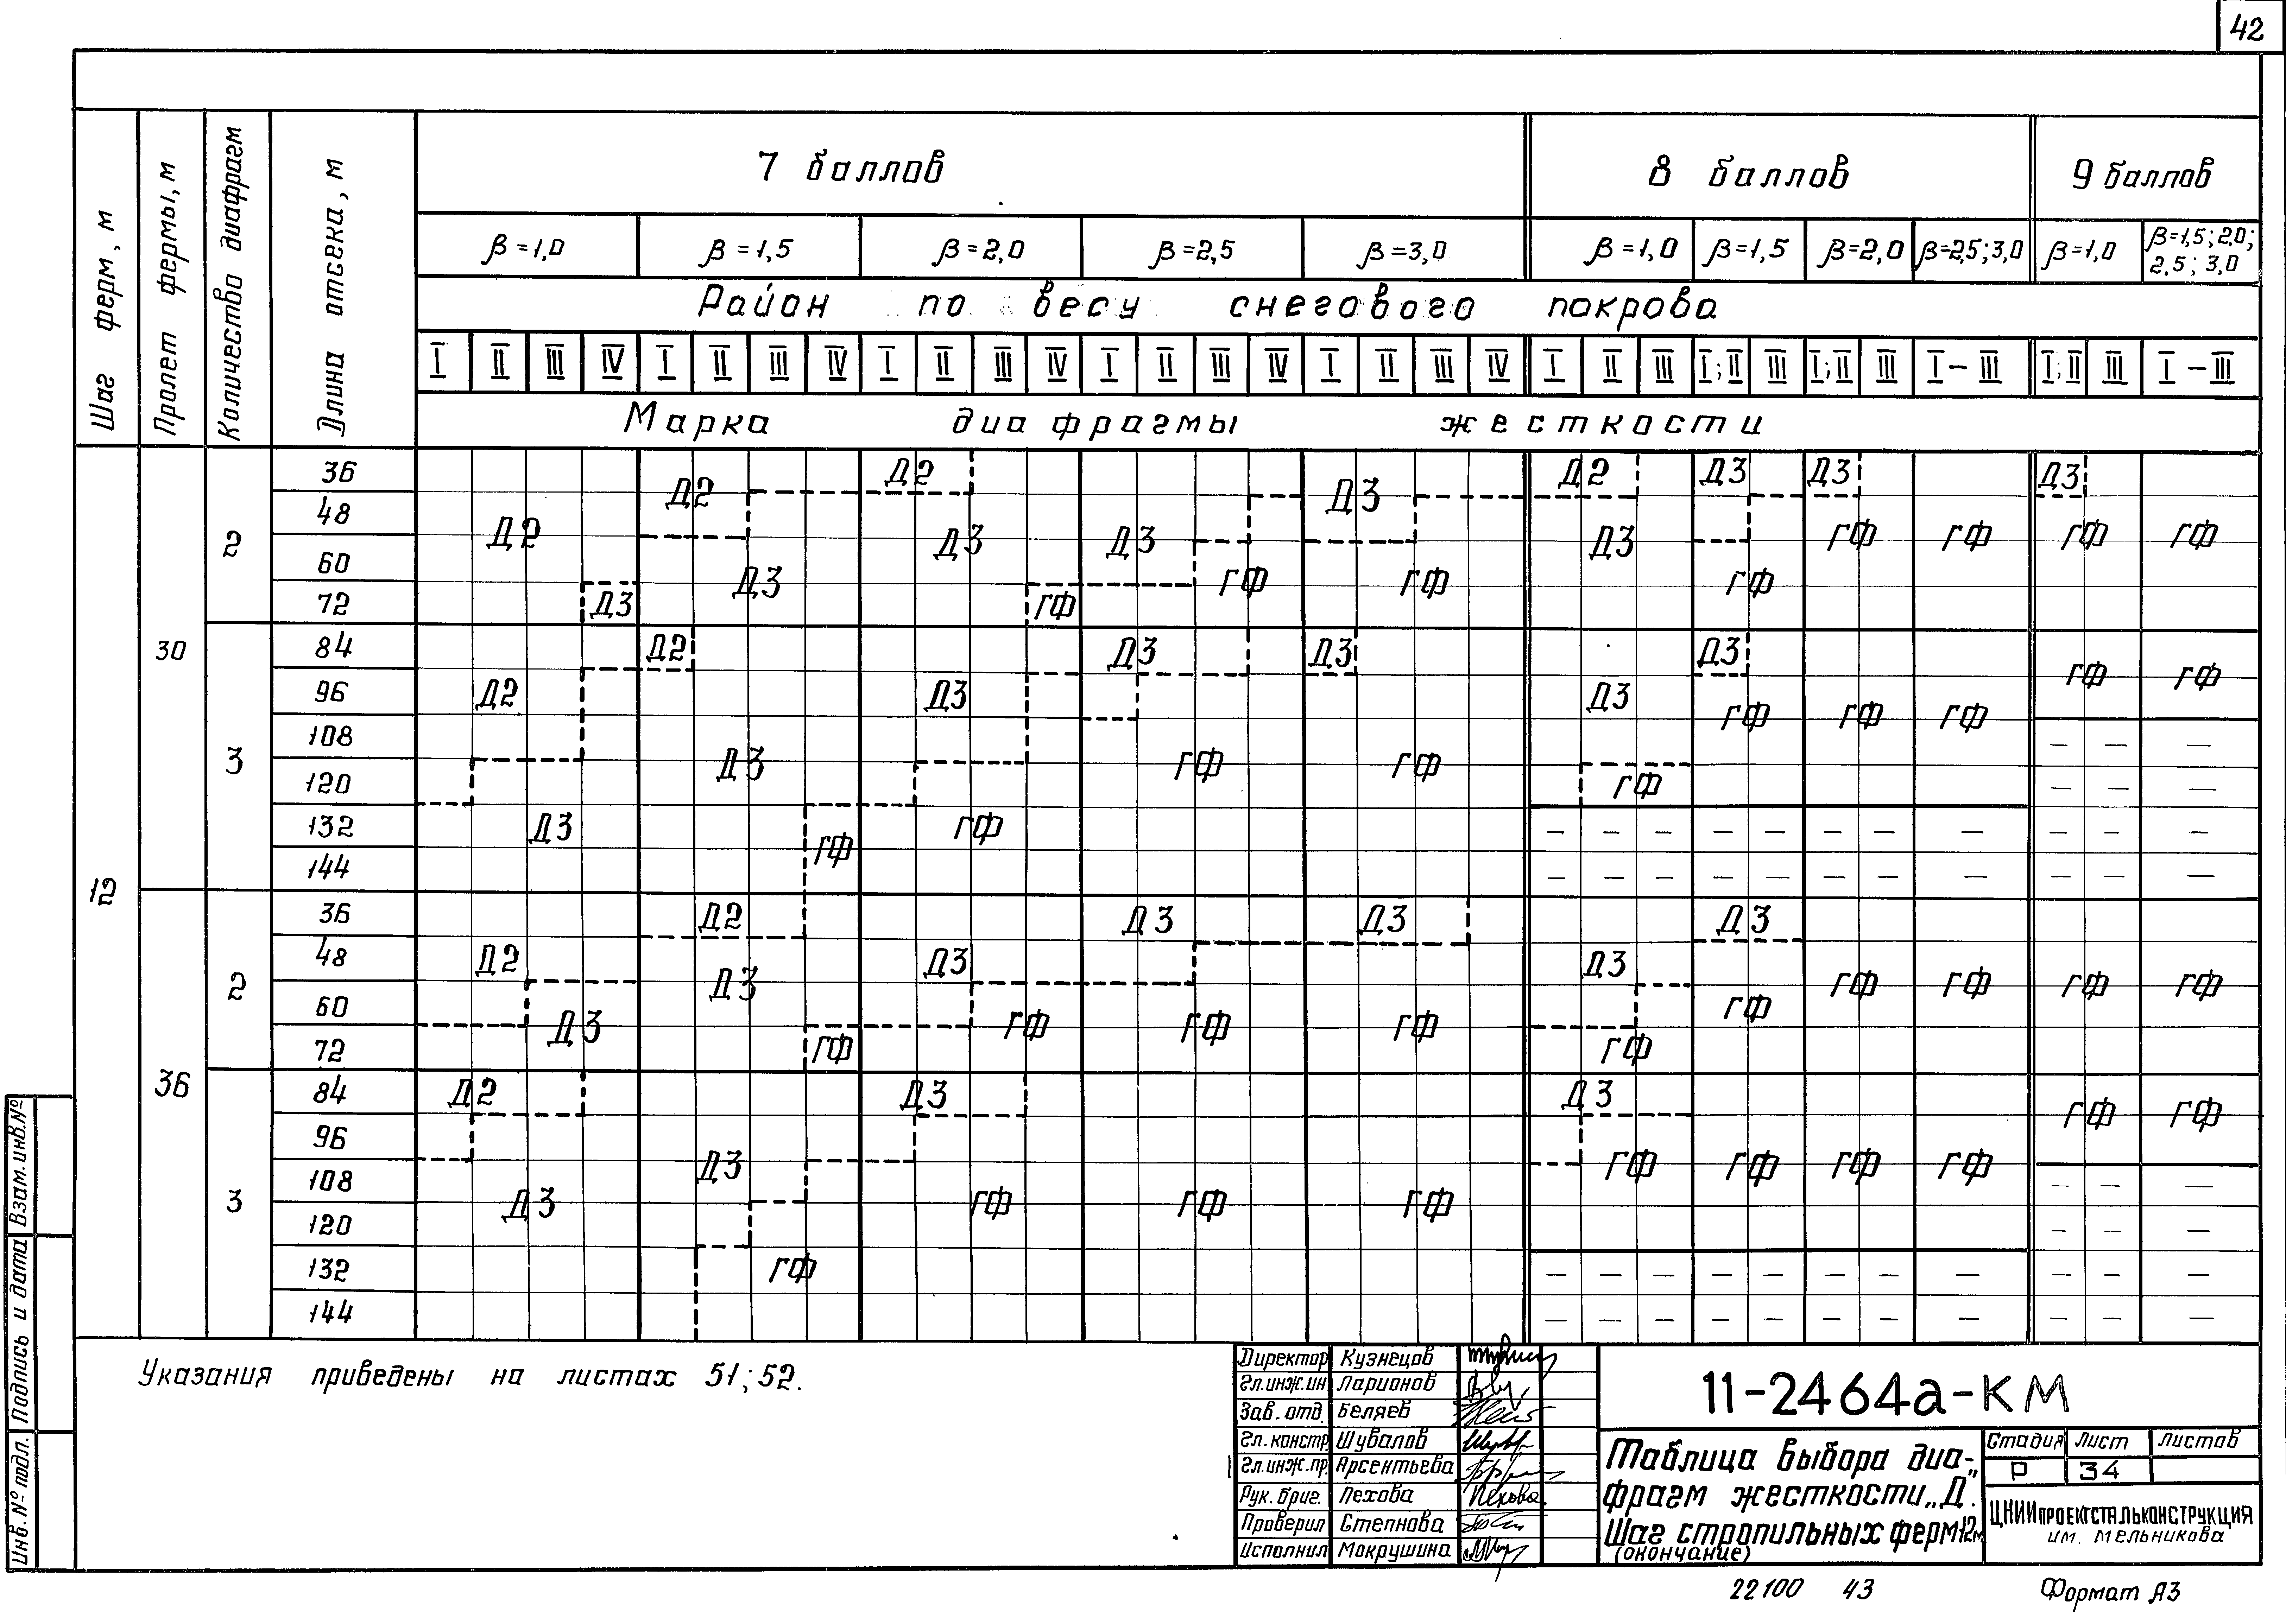 42
Шаг ферм, м
Пролет фермы, м
Количество диафрагм
Длина отсека, м
7 баллов 8 баллов 9 баллов
β=1,0 β=1,5 β=2,0 β=2,5 β=3,0 β=1,0 β=1,5 β=2,0 β=2,5;3,0 β=1,0 β=1,5;2,0;
2,5; 3,0
Район по весу снегового покрова
I II III IV I II III IV I II III IV I II III IV I II III IV I II III I;II III I;II III I–III I;II III I–III
Марка диафрагмы жесткости
36 Д2 Д2 Д3 Д3 Д3
48 Д2 Д3
2 Д2 Д3 Д3 Д3 ГФ ГФ ГФ ГФ
60 Д3 ГФ ГФ ГФ
72 Д3 ГФ
30 84 Д2 Д3 Д3 Д3
96 Д2 Д3 Д3 ГФ ГФ
ГФ ГФ ГФ
108 — — —
3 Д3 ГФ ГФ
120 ГФ — — —
132 Д3 ГФ — — — — — — — — — — —
ГФ
144 — — — — — — — — — — —
12
36 Д2 Д3 Д3 Д3
48 Д2 Д3 Д3
2 Д3 ГФ ГФ ГФ ГФ
60 Д3 ГФ ГФ ГФ ГФ
72 ГФ ГФ
36 84 Д2 Д3 Д3
ГФ ГФ
96
Д3 ГФ ГФ ГФ ГФ
108 — — —
3 Д3 ГФ ГФ ГФ
120 — — —
132 ГФ — — — — — — — — — — —
144 — — — — — — — — — — —
Указания приведены на листах 51; 52.
Взам. инв. №
Подпись и дата
Инв. № подл.
Директор Кузнецов
Гл. инж. ин. Ларионов
Зав. отд. Беляев
Гл. констр. Шувалов
Гл. инж. пр. Арсентьева
Рук. бриг. Пехова Пехова
Проверил Степнова
Исполнил Мокрушина
11-2464а-КМ
Таблица выбора диа-
фрагм жесткости „Д".
Шаг стропильных ферм 12м
(окончание)
Стадия Лист Листов
Р 34
ЦНИИПРОЕКТСТАЛЬКОНСТРУКЦИЯ
им. Мельникова
22100 43
Формат А3